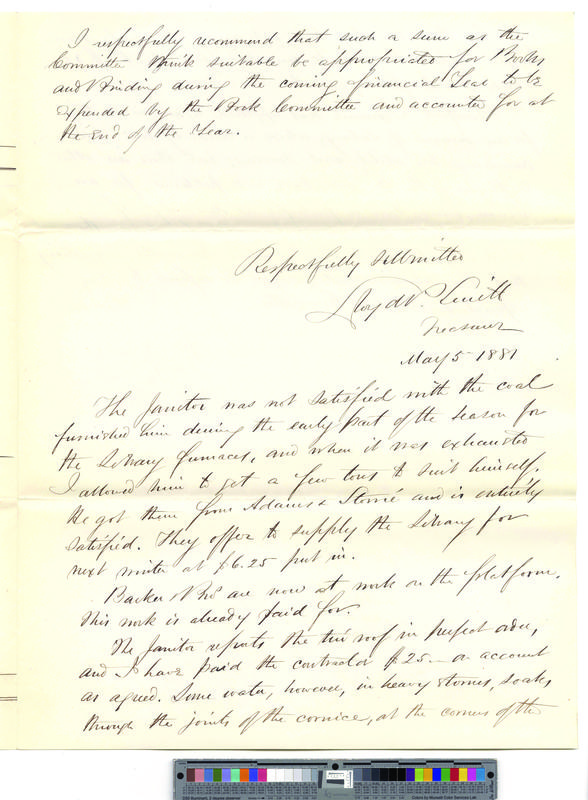 I respectfully recommend that such a sum as the
Committee think suitable be appropriated for Books
and Binding during the coming financial Year to be
expended by the Book Committee and accounted for at
the end of the Year.
Respectfully submitted
Lloyd P. Smith
Treasurer
May 5 1881
The Janitor was not satisfied with the coal
furnished him during the early part of the season for
the Library furnaces, and when it was exhausted
I allowed him to get a few tons to suit himself.
He got them from Adams & and is entirely
satisfied. They offer to supply the Library for
next winter at $6.25 put in.
Barker & Bro are now at work on the platform.
This work is already paid for.
The Janitor reports the tin roof in perfect order,
and I have paid the contractor $25.— on account
as agreed. Some water, however, in heavy storms, soaks
through the joints of the cornice, at the corners of the